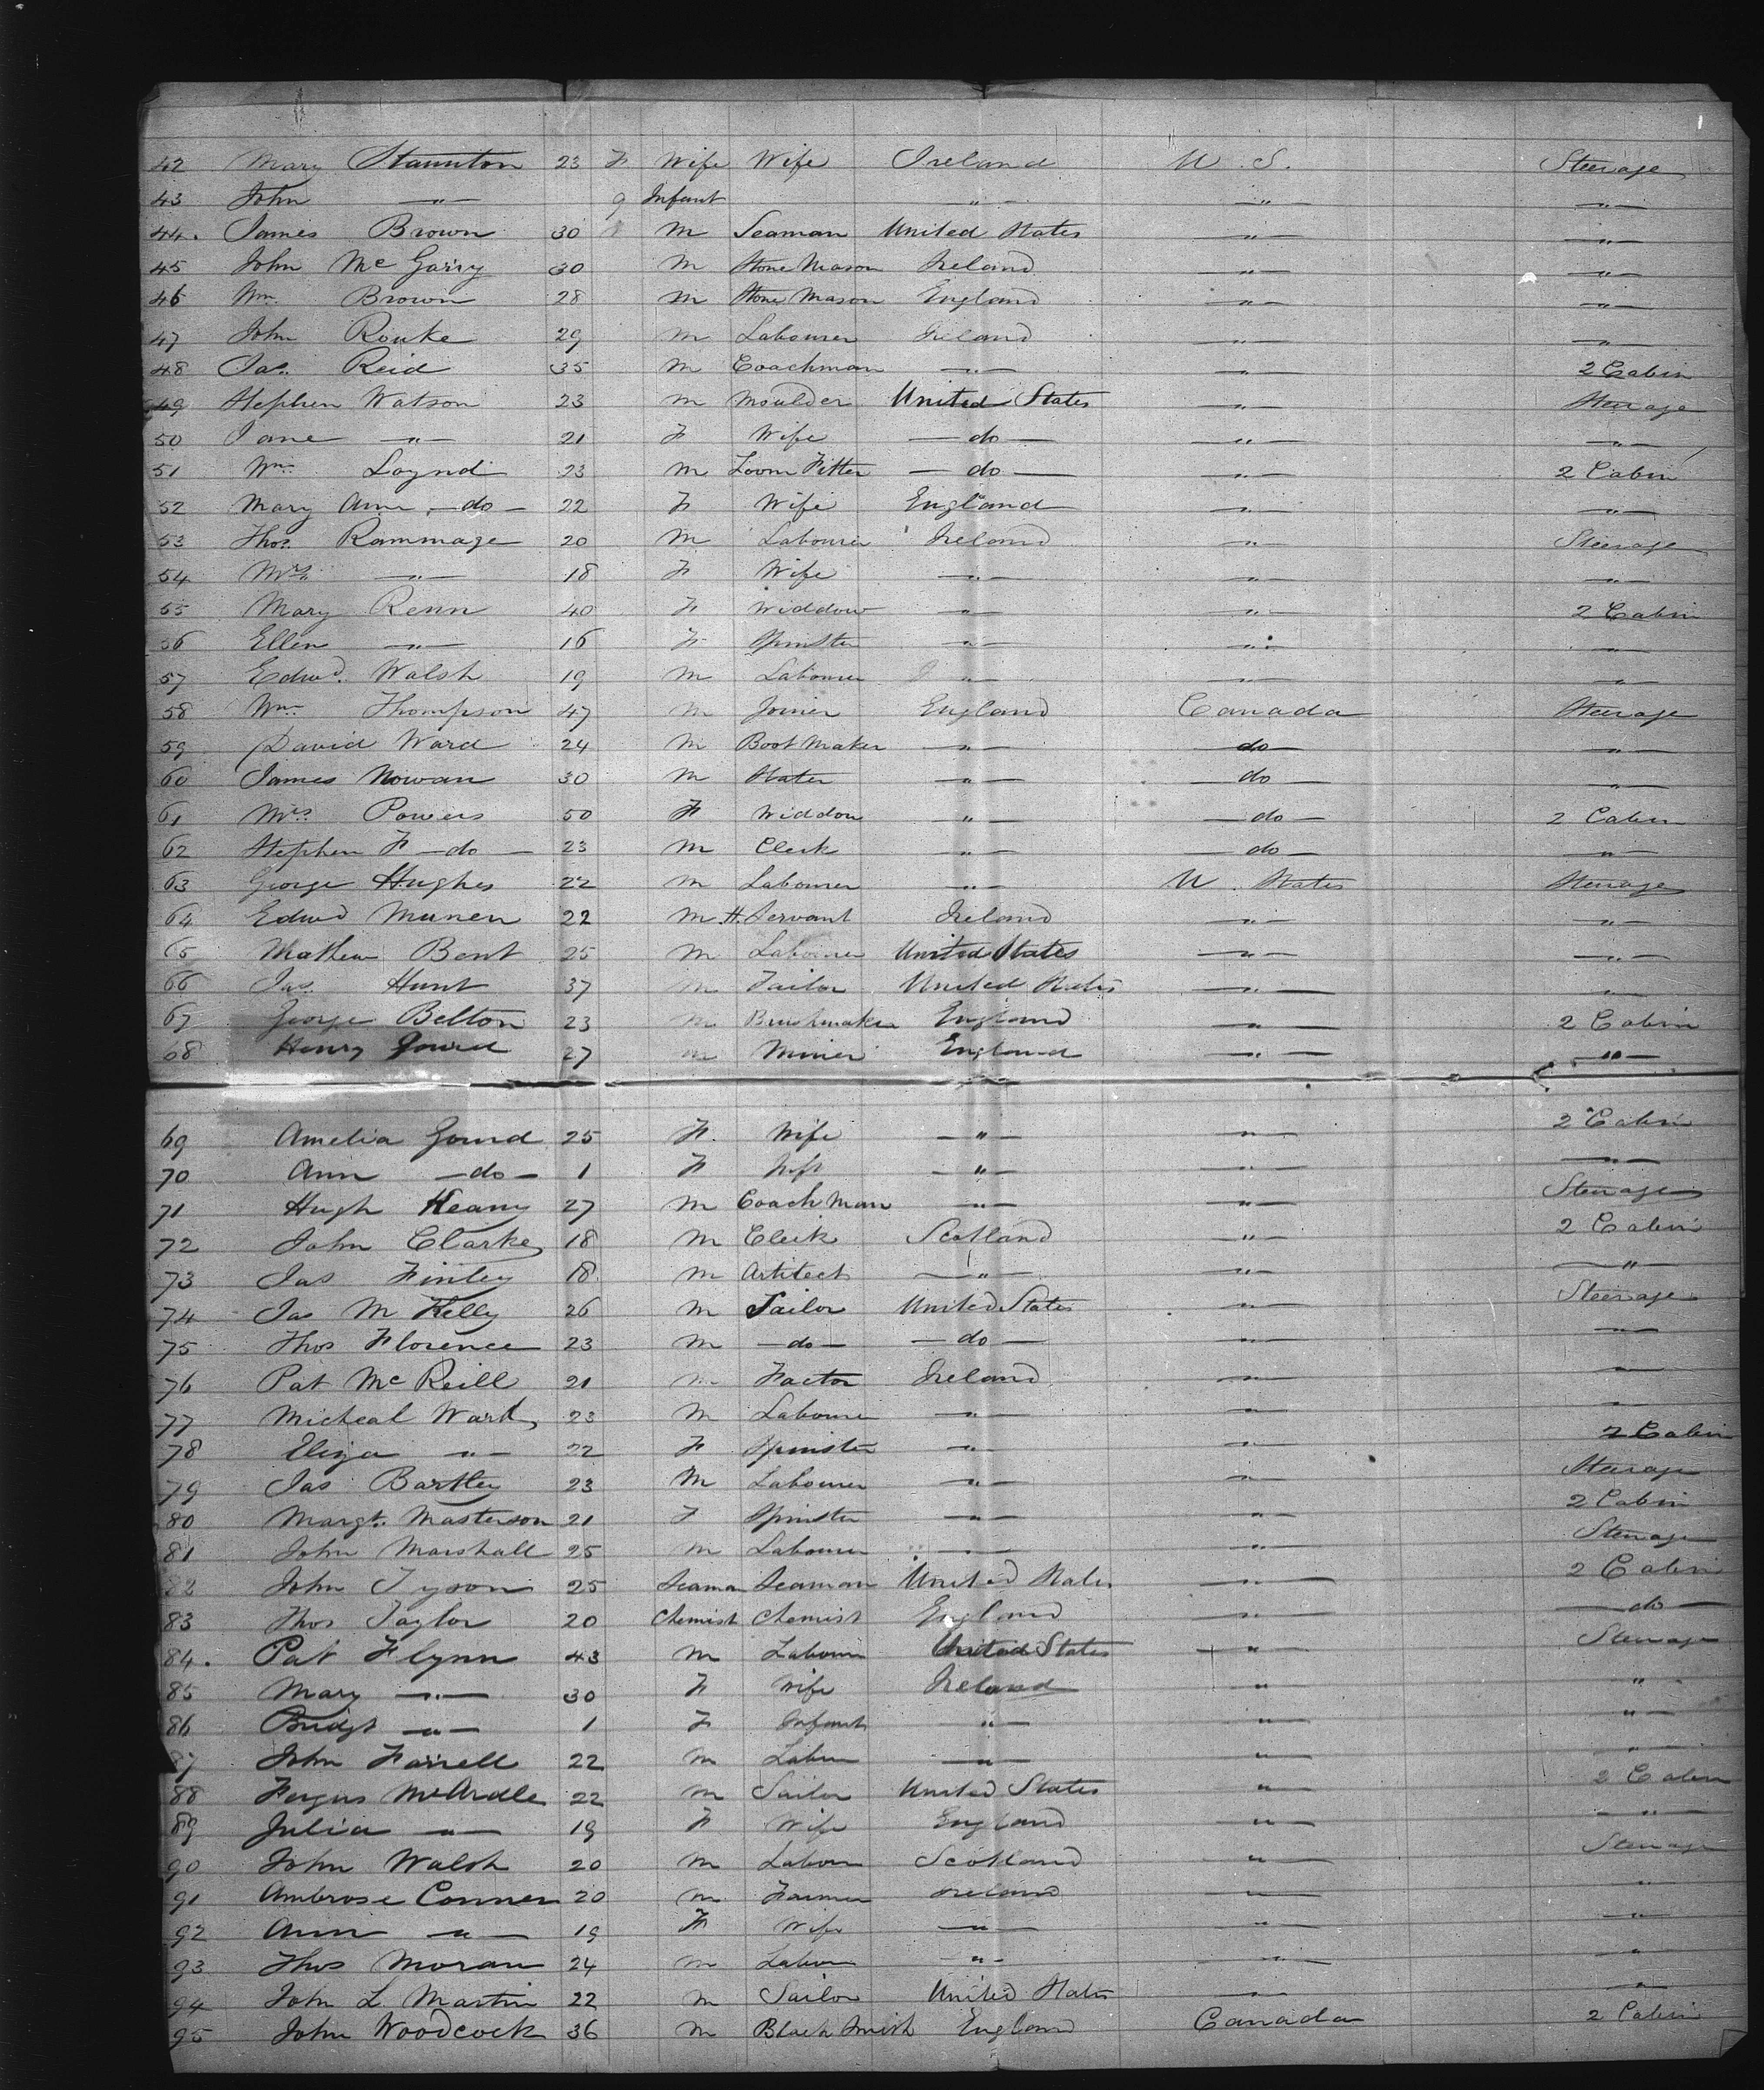 42 Mary Staunton 23 F Wife Wife Ireland U. S. Steerage
43 John —"— 9 Infant —"— —"— —"—
44. James Brown 30 M Seaman United States —"— —"—
45 John McGarry 30 M Stone Mason Ireland —"— —"—
46 Wm. Brown 28 M Stone Mason England —"— —"—
47 John Rouke 29 M Labourer Ireland —"— —"—
48 Jas. Reid 35 M Coachman —"— —"— 2 Cabin
49 Stephen Watson 23 M Moulder United States —"— Steerage
50 Jane —"— 21 F Wife —do— —"— —"—
51 Wm. Loynd 23 M Loom Fitter —do— —"— 2 Cabin
52 Mary Ann —do— 22 F Wife England —"— —"—
53 Thos. Rammage 20 M Labourer Ireland —"— Steerage
54 Mrs. —"— 18 F Wife —"— —"— —"—
55 Mary Renn 40 F Widdow —"— —"— 2 Cabin
56 Ellen —"— 16 F Spinster —"— —"— —"—
57 Edwd. Walsh 19 M Labourer —"— —"— —"—
58 Wm. Thompson 47 M Joiner England Canada Steerage
59 David Ward 24 M Boot Maker —"— —do— —"—
60 James Nowan 30 M Slater —"— —do— —"—
61 Mrs. Powers 50 F Widdow —"— —do— 2 Cabin
62 Stephen F —do— 23 M Clerk —"— —do— —"—
63 George Hughes 22 M Labourer —"— U. States Steerage
64 Edwd Munen 22 M H. Servant Ireland —"— —"—
65 Mathew Bent 25 M Labourer United States —"— —"—
66 Jas. Hunt 37 M Tailor United States —"— —"—
67 George Belton 23 M Brushmaker England —"— 2 Cabin
68 Henry Gourd 27 M Miner England —"— —"—
69 Amelia Gourd 25 F. Wife —"— —"— 2 Cabin
70 Ann —do— 1 F —"— —"— —"—
71 Hugh Heany 27 M Coach Man —"— —"— Steerage
72 John Clarke 18 M Clerk Scotland —"— 2 Cabin
73 Jas Finley 18 M Artitect —"— —"— —"—
74 Jas M Kelly 26 M Sailor United States —"— Steerage
75 Thos Florence 23 M —do— —do— —"— —"—
76 Pat McReill 21 M Factor Ireland —"— —"—
77 Micheal Ward 23 M Labourer —"— —"— —"—
78 Eliza —"— 22 F Spinster —"— —"— 2 Cabin
79 Jas Bartley 23 M Labourer —"— —"— Steerage
80 Margt. Masterson 21 F Spinster —"— —"— 2 Cabin
81 John Marshall 25 M Labourer —"— —"— Steerage
82 John Tyson 25 Seaman Seaman United States —"— 2 Cabin
83 Thos Taylor 20 Chemist Chemist England —"— —do—
84. Pat Flynn 43 M Labourer United States —"— Steerage
85 Mary —"— 30 F Wife Ireland " "
86 Bridgt —"— 1 F Infant —"— —"— —"—
87 John Farrell 22 M Labour —"— —"— —"—
88 Fergus McArdle 22 M Sailor United States —"— 2 Cabin
89 Julia —"— 19 F Wife England —"— —"—
90 John Walsh 20 M Labour Scotland —"— Steerage
91 Ambrose Conner 20 M Farmer Ireland —"— "
92 Ann —"— 19 F Wife —"— —"— —"—
93 Thos Moran 24 M Labour —"— —"— —"—
94 John L Martin 22 M Sailor United States —"— —"—
95 John Woodcock 36 M Black Smith England Canada 2 Cabin